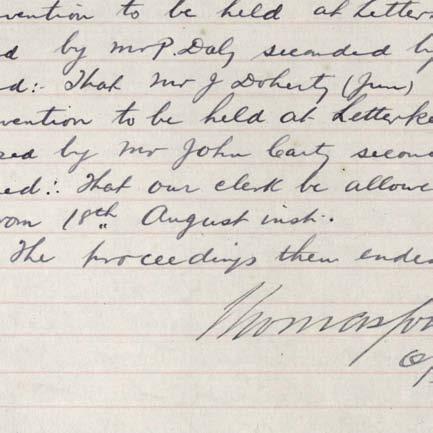 vention to be held at Letter
d by Mr P. Daly seconded by
ed:- That Mr J Doherty (Jun)
vention to be held at Letterke
sed by Mr John Carty secon
ed:. That our clerk be allowe
rom 18th August inst.
The proceedings then ended
Thomas